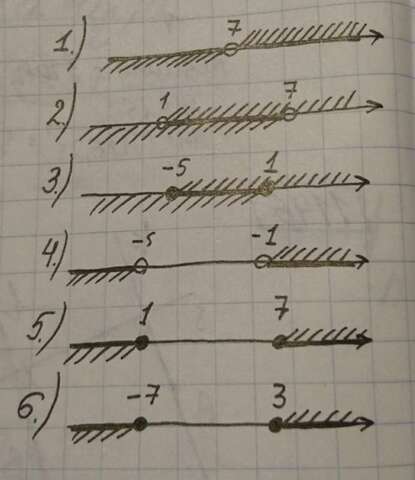 1.) 7
2.) 1 7
3.) -5 1
4.) -5 -1
5.) 1 7
6.) -7 3